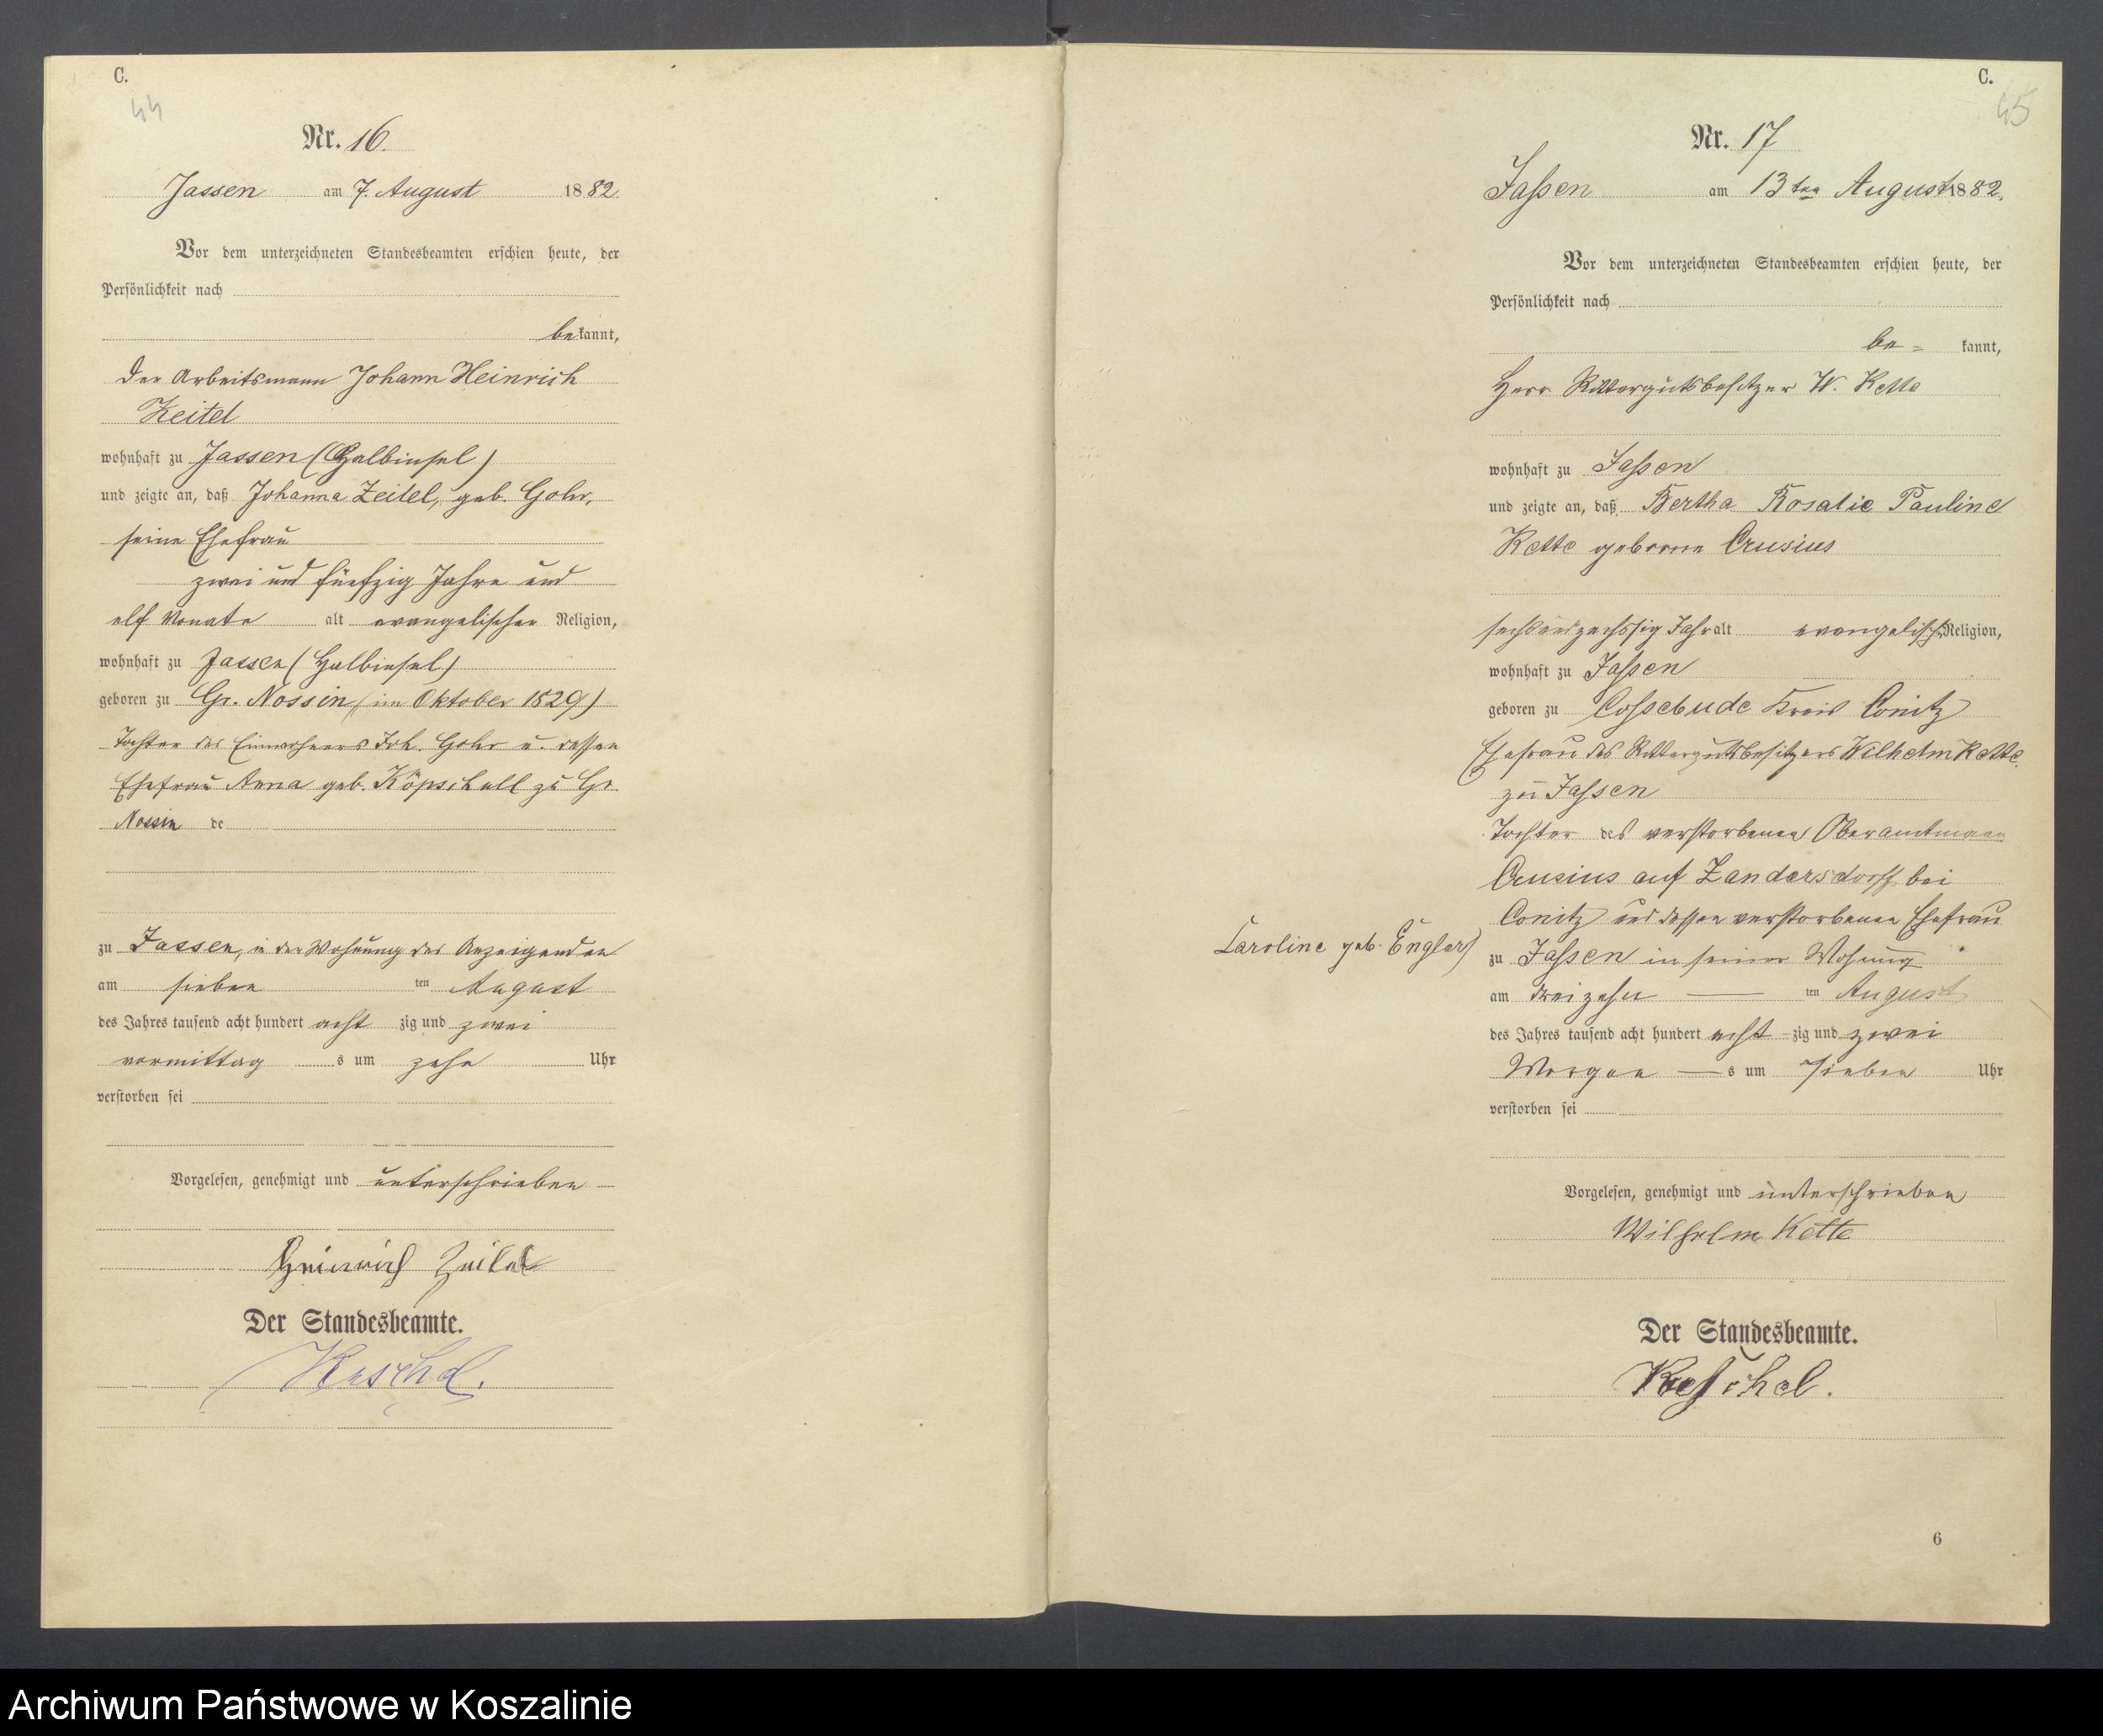 C.
44
Nr. 16.
Jassen am 7. August 1882.
Vor dem unterzeichneten Standesbeamten erschien heute, der
Persönlichkeit nach
bekannt,
der Arbeitsmann Johann Heinrich
Zeitel
wohnhaft zu Jassen (Halbinsel)
und zeigte an, daß Johanna Zeitel, geb. Gohr,
seine Ehefrau
zwei und fünfzig Jahre und
elf Monate alt evangelischer Religion,
wohnhaft zu Jassen (Halbinsel)
geboren zu Gr. Nossin, (im Oktober 1829)
Tochter des Einwohners Joh. Gohr u. dessen
Ehefrau Anna geb. zu Gr.
Nossin de
zu Jassen, in der Wohnung des Anzeigenden
am sieben ten August
des Jahres tausend acht hundert acht zig und zwei
vormittag s um zehn Uhr
verstorben sei
Vorgelesen, genehmigt und unterschrieben
Heinrich Zeitel
Der Standesbeamte.
C.
45
Nr. 17
Jaßen am 13ten August 1882.
Vor dem unterzeichneten Standesbeamten erschien heute, der
Persönlichkeit nach
be= kannt,
Herr Rittergutsbesitzer W. Kette
wohnhaft zu Jaßen
und zeigte an, daß Bertha Rosalie Pauline
Kette geborne Crusius
sechsundsechssig Jahr alt evangelisch Religion,
wohnhaft zu Jaßen
geboren zu Coßebude Kreis Conitz
Ehefrau des Rittergutsbesitzers Wilhelm Kette
zu Jaßen
Tochter des verstorbenen Oberamtmann
Crusius auf Zandersdorff bei
Conitz und dessen verstorbenen Ehefrau
Caroline geb. Engler)
zu Jaßen in seiner Wohnung
am dreizehn ten August
des Jahres tausend acht hundert acht zig und zwei
Morgen s um sieben Uhr
verstorben sei
Vorgelesen, genehmigt und unterschrieben
Wilhelm Kette
Der Standesbeamte.
6
Archiwum Państwowe w Koszalinie